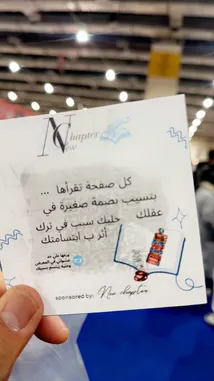 New
Chapter
كل صفحة تقرأها ...
بتسيب بصمة صغيرة في
عقلك خليك سبب في ترك
أثر ب ابتسامتك
sponsored by: New chapter